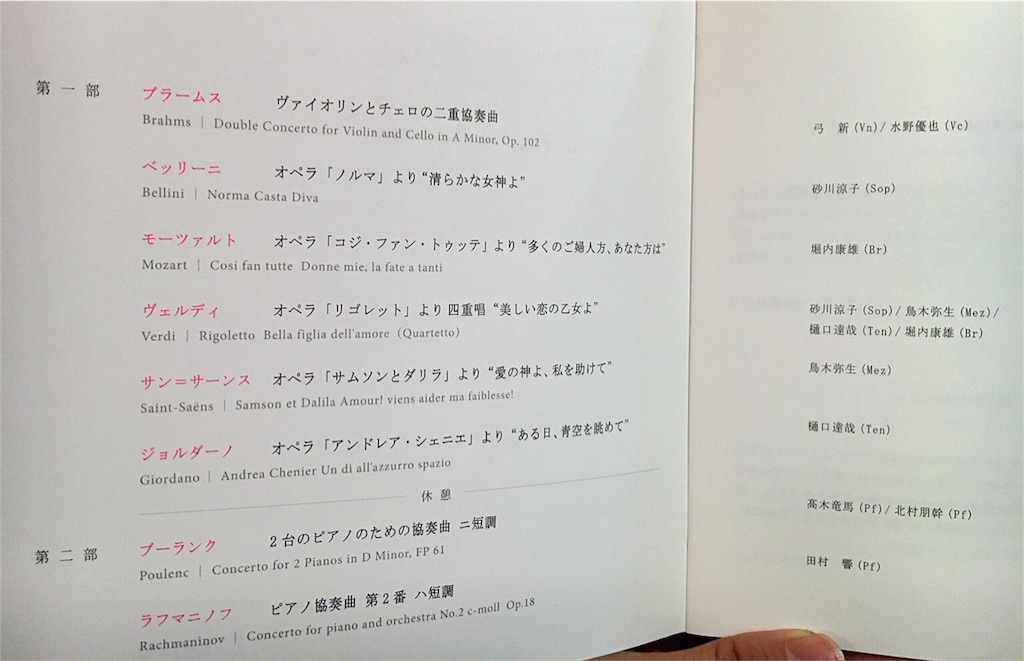 第一部
ブラームス ヴァイオリンとチェロの二重協奏曲
Brahms | Double Concerto for Violin and Cello in A Minor, Op. 102
ベッリーニ オペラ「ノルマ」より“清らかな女神よ”
Bellini | Norma Casta Diva
モーツァルト オペラ「コジ・ファン・トゥッテ」より“多くのご婦人方、あなた方は”
Mozart | Cosi fan tutte Donne mie, la fate a tanti
ヴェルディ オペラ「リゴレット」より 四重唱 “美しい恋の乙女よ”
Verdi | Rigoletto Bella figlia dell'amore（Quartetto）
サン＝サーンス オペラ「サムソンとダリラ」より “愛の神よ、私を助けて”
Saint-Saëns | Samson et Dalila Amour! viens aider ma faiblesse!
ジョルダーノ オペラ「アンドレア・シェニエ」より “ある日、青空を眺めて”
Giordano | Andrea Chenier Un dì all'azzurro spazio
休憩
第二部
プーランク 2台のピアノのための協奏曲 ニ短調
Poulenc | Concerto for 2 Pianos in D Minor, FP 61
ラフマニノフ ピアノ協奏曲 第2番 ハ短調
Rachmaninov | Concerto for piano and orchestra No.2 c-moll Op.18
弓 新 (Vn) / 水野優也 (Vc)
砂川涼子 (Sop)
堀内康雄 (Br)
砂川涼子 (Sop) / 鳥木弥生 (Mez) /
樋口達哉 (Ten) / 堀内康雄 (Br)
鳥木弥生 (Mez)
樋口達哉 (Ten)
髙木竜馬 (Pf) / 北村朋幹 (Pf)
田村 響 (Pf)